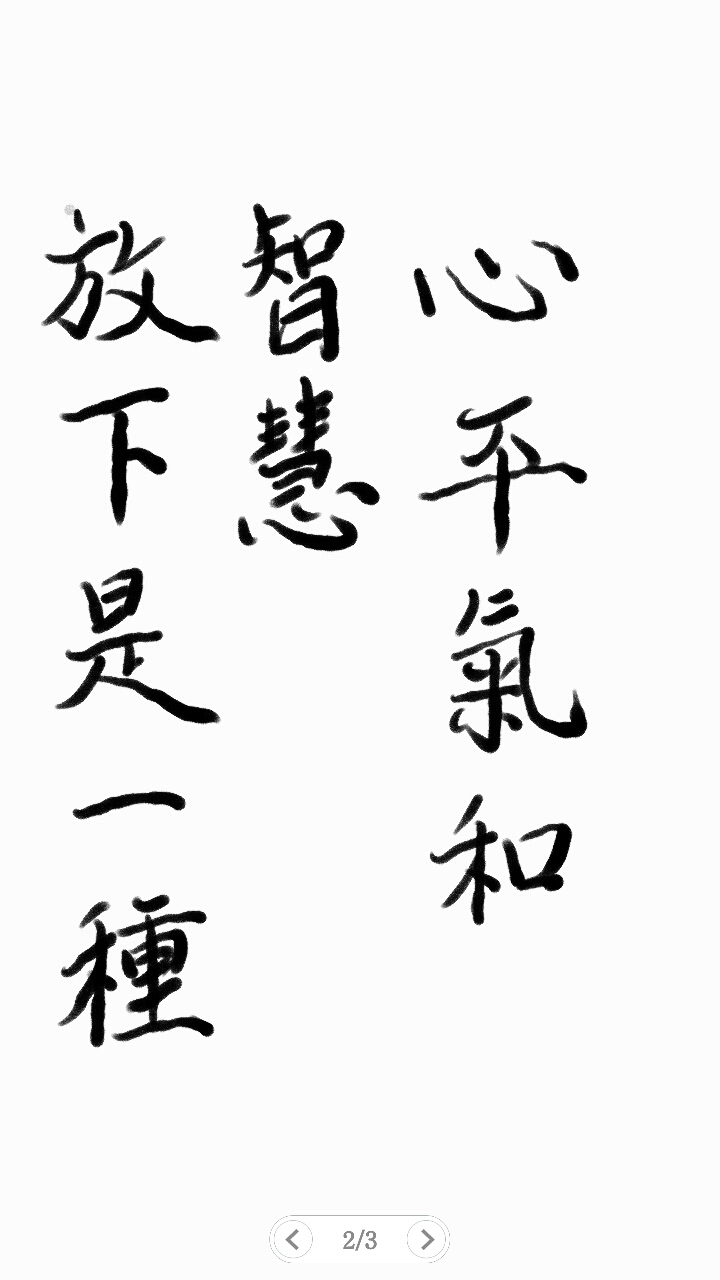 放下是一種
智慧
心平氣和
2/3